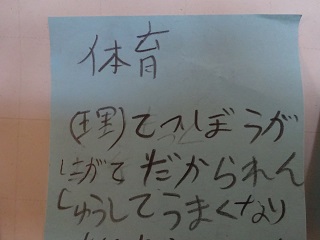 体育
(理)てつぼうが
にがてだかられん
しゅうしてうまくなり